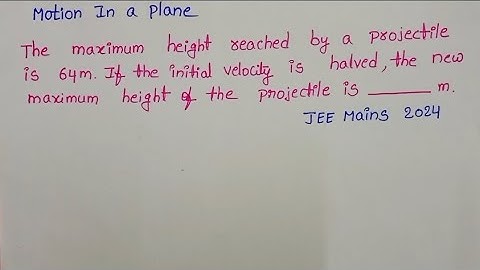 Motion In a plane
The maximum height reached by a projectile
is 64m. If the initial velocity is halved, the new
maximum height of the projectile is ______ m.
JEE Mains 2024